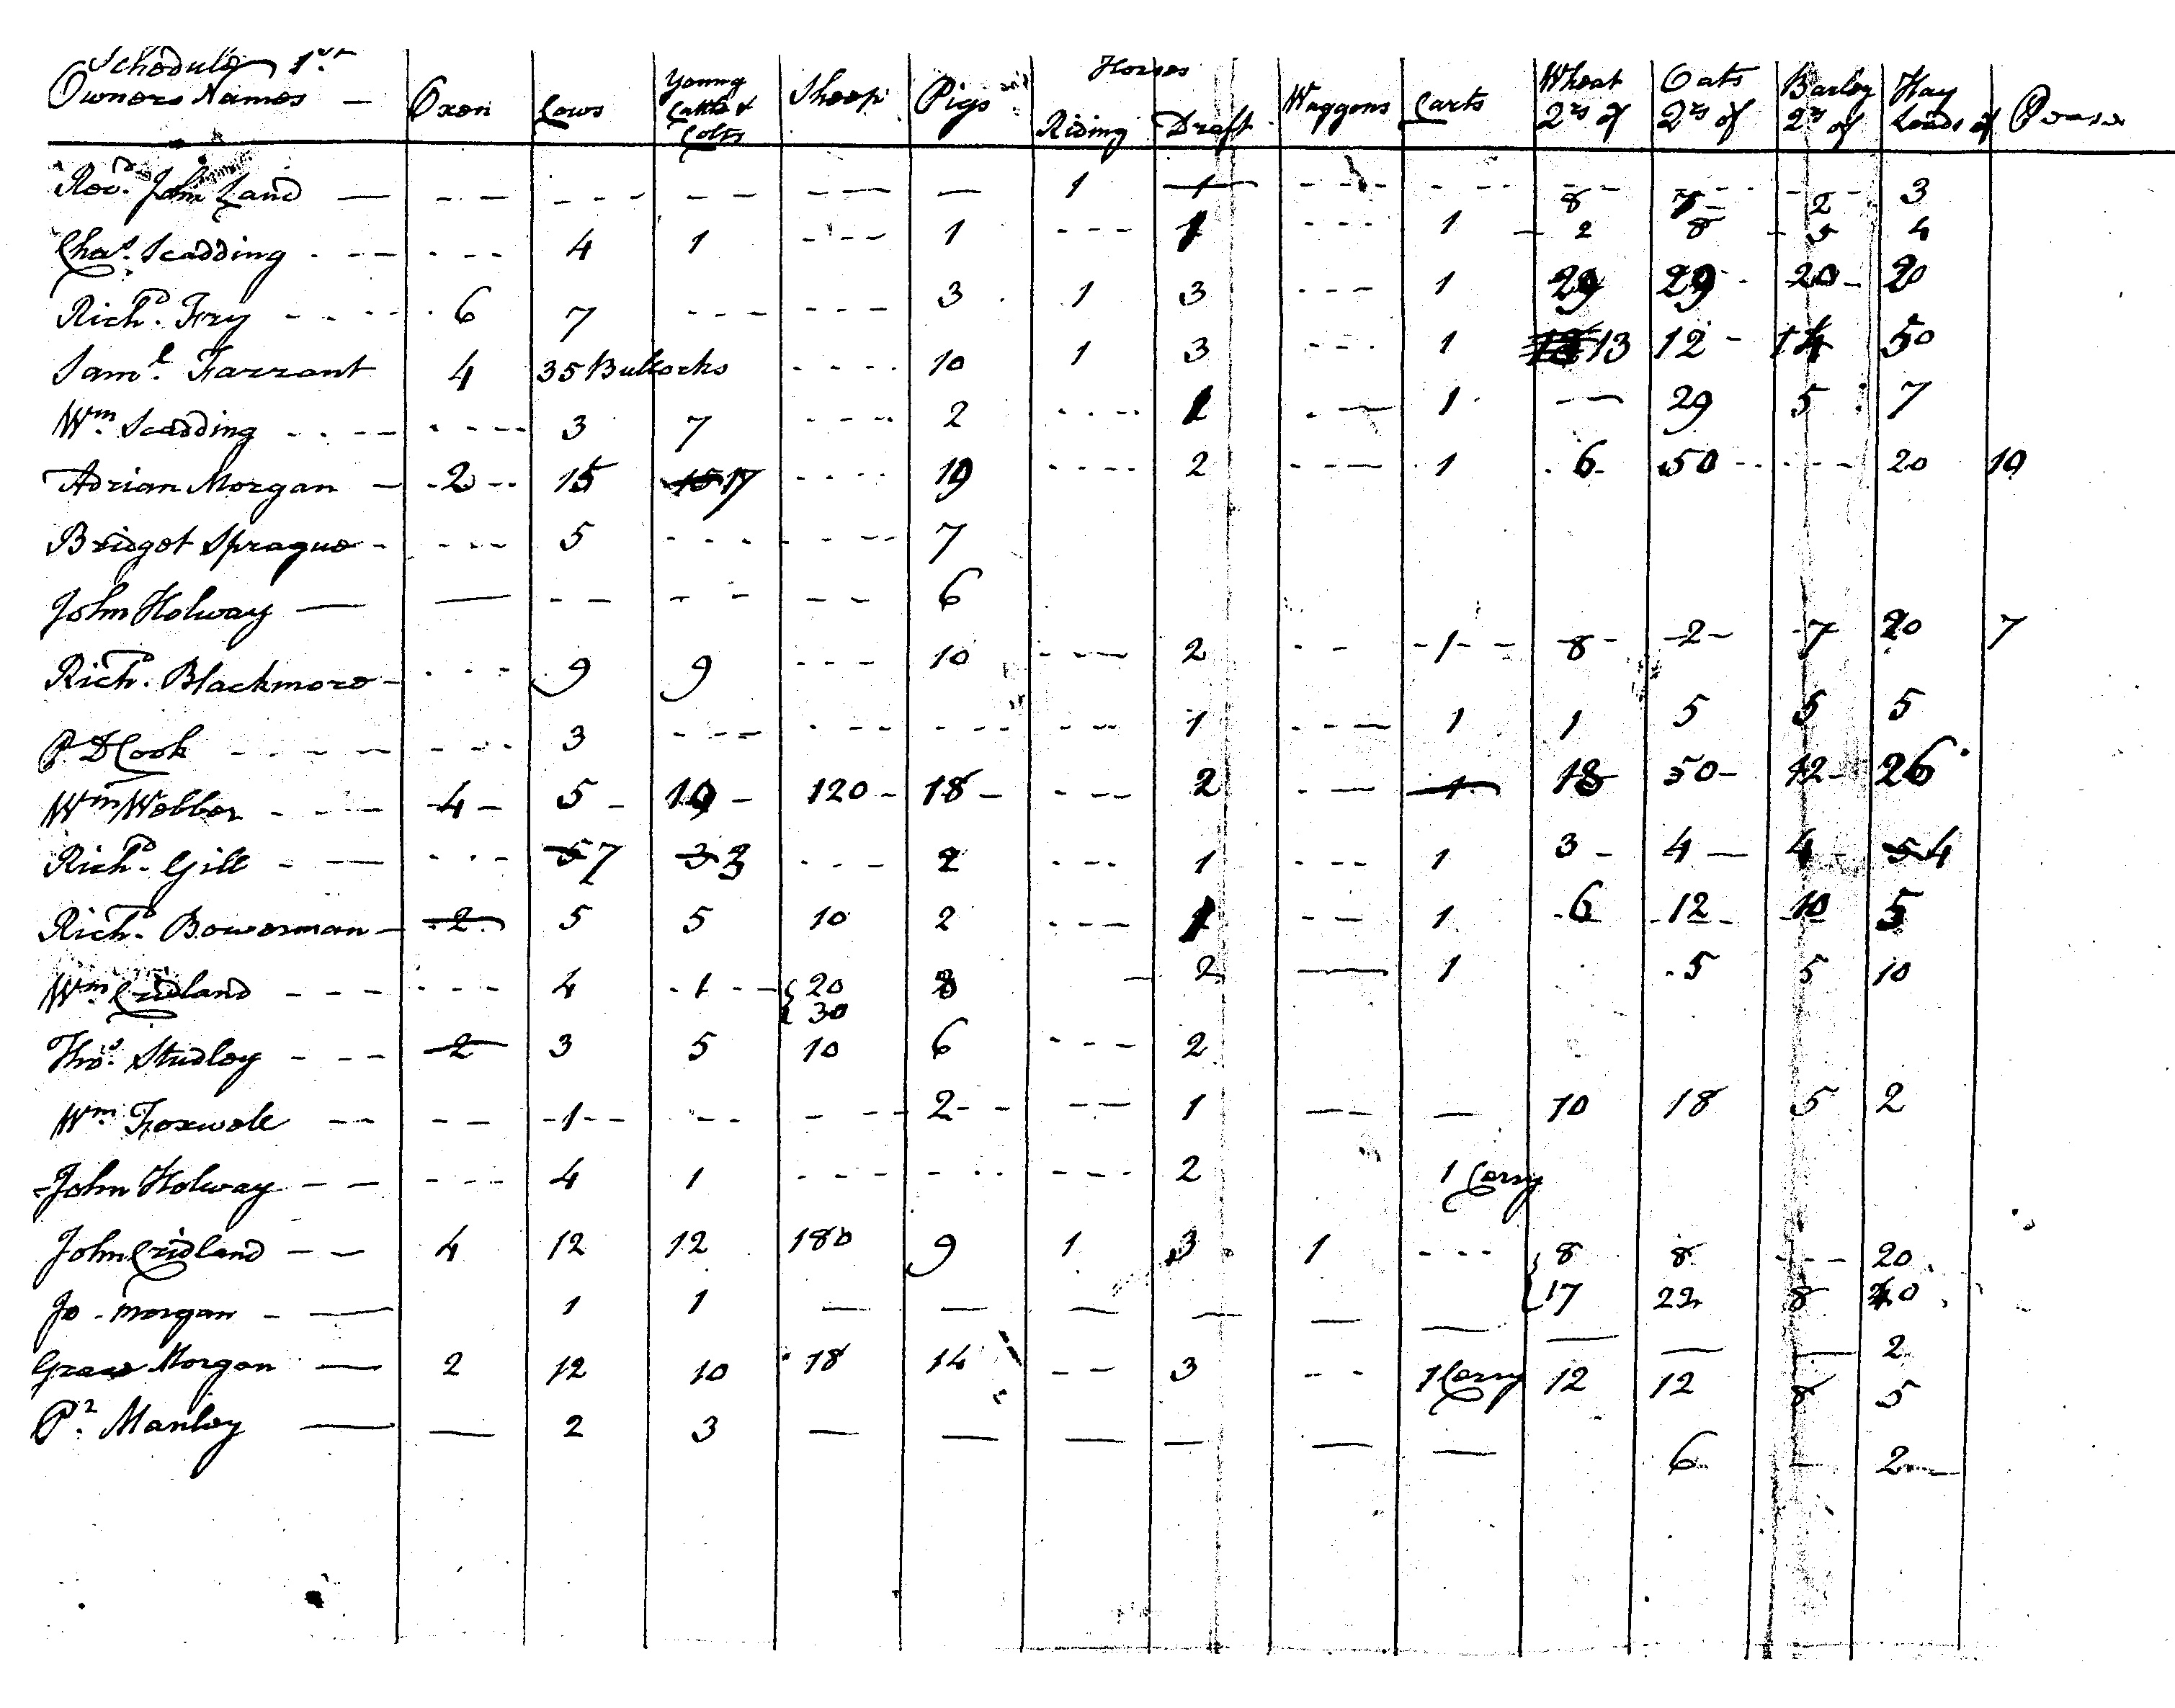 Schedule 1st
Owners Names — Oxen Cows Young Cattle & Colts Sheep Pigs Horses Riding Draft Waggons Carts Wheat Qrs of Oats Qrs of Barley Qrs of Hay Loads of Pease
Revd. John Land — - - — - - - - — — - — — 1 1 - - - - - - - - - - - - - - 3
Chas. Scadding - - - - - - 4 1 - - - 1 - - - 1 - - - 1 8 2 8 2 5 4
Richd. Fry - - - - 6 7 - - - - - - 3 1 3 - - - 1 29 29 20 20
Saml. Farrant 4 35 Bullocks - - - - 10 1 3 - - - 1 13 12 14 50
Wm. Scadding - - - - - - 3 7 - - - 2 - - - 1 - - 1 — 29 5 7
Adrian Morgan — 2 15 15 17 - - - - 19 - - - - 2 - - - 1 6 50 - - - 20 10
Bridget Sprague - - - - 5 - - - - - - 7
John Holway — — - - - - - - 6
Richd. Blackmore - - - - 9 9 - - - 10 - - - 2 - - 1 8 2 7 20 7
P D Cook - - - - - - - 3 - - - - - - - - - - - 1 - - - 1 1 5 5 5
Wm Webber - - - 4 5 19 120 18 - - - 2 - — 1 18 50 12 26
Richd. Gill - — - - - 5 7 3 3 - - - 2 - - - 1 - - - 1 3 4 4 5 4
Richd. Bowerman — 2 5 5 10 2 - - - 1 - - 1 6 12 10 5
Wm. Cridland - - - - - - 4 1 { 20 8 — 2 — 1 5 5 10
30
Thos. Studley - - - 2 3 5 10 6 - - - 2
Wm. Foxwell - - - - 1 - - - - 2 - - 1 — — 10 18 5 2
John Holway - - - - - 4 1 - - - - - - - - - 2 1 Carry
John Cridland - - 4 12 12 180 9 1 3 1 - - - { 8 8 - - - 20
17 22 8 40
Jo - Morgan - — 1 1 — — — — — — — — — 2
Grace Morgan — 2 12 10 18 14 - - 3 - - 1 Carry 12 12 8 5
Pr. Manley — — 2 3 — — — — — — 6 — 2